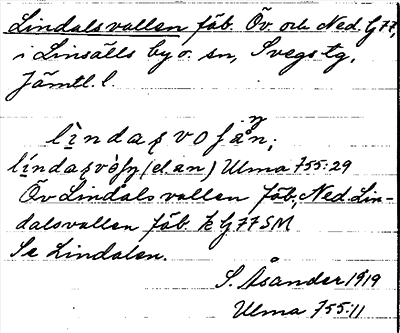 Lindalsvallen fäb. Öv. och Ned. G 77,
i Linsälls by o. sn, Svegs tg,
Jämtl. l.
lindaʂvoʃaṇ;
(el. an) Ulma 755:29
Öv Lindalsvallen fäb, Ned. Lin-
dalsvallen fäb. E G 77 SM
Se Lindalen.
S. Åsander 1919
Ulma 755:11